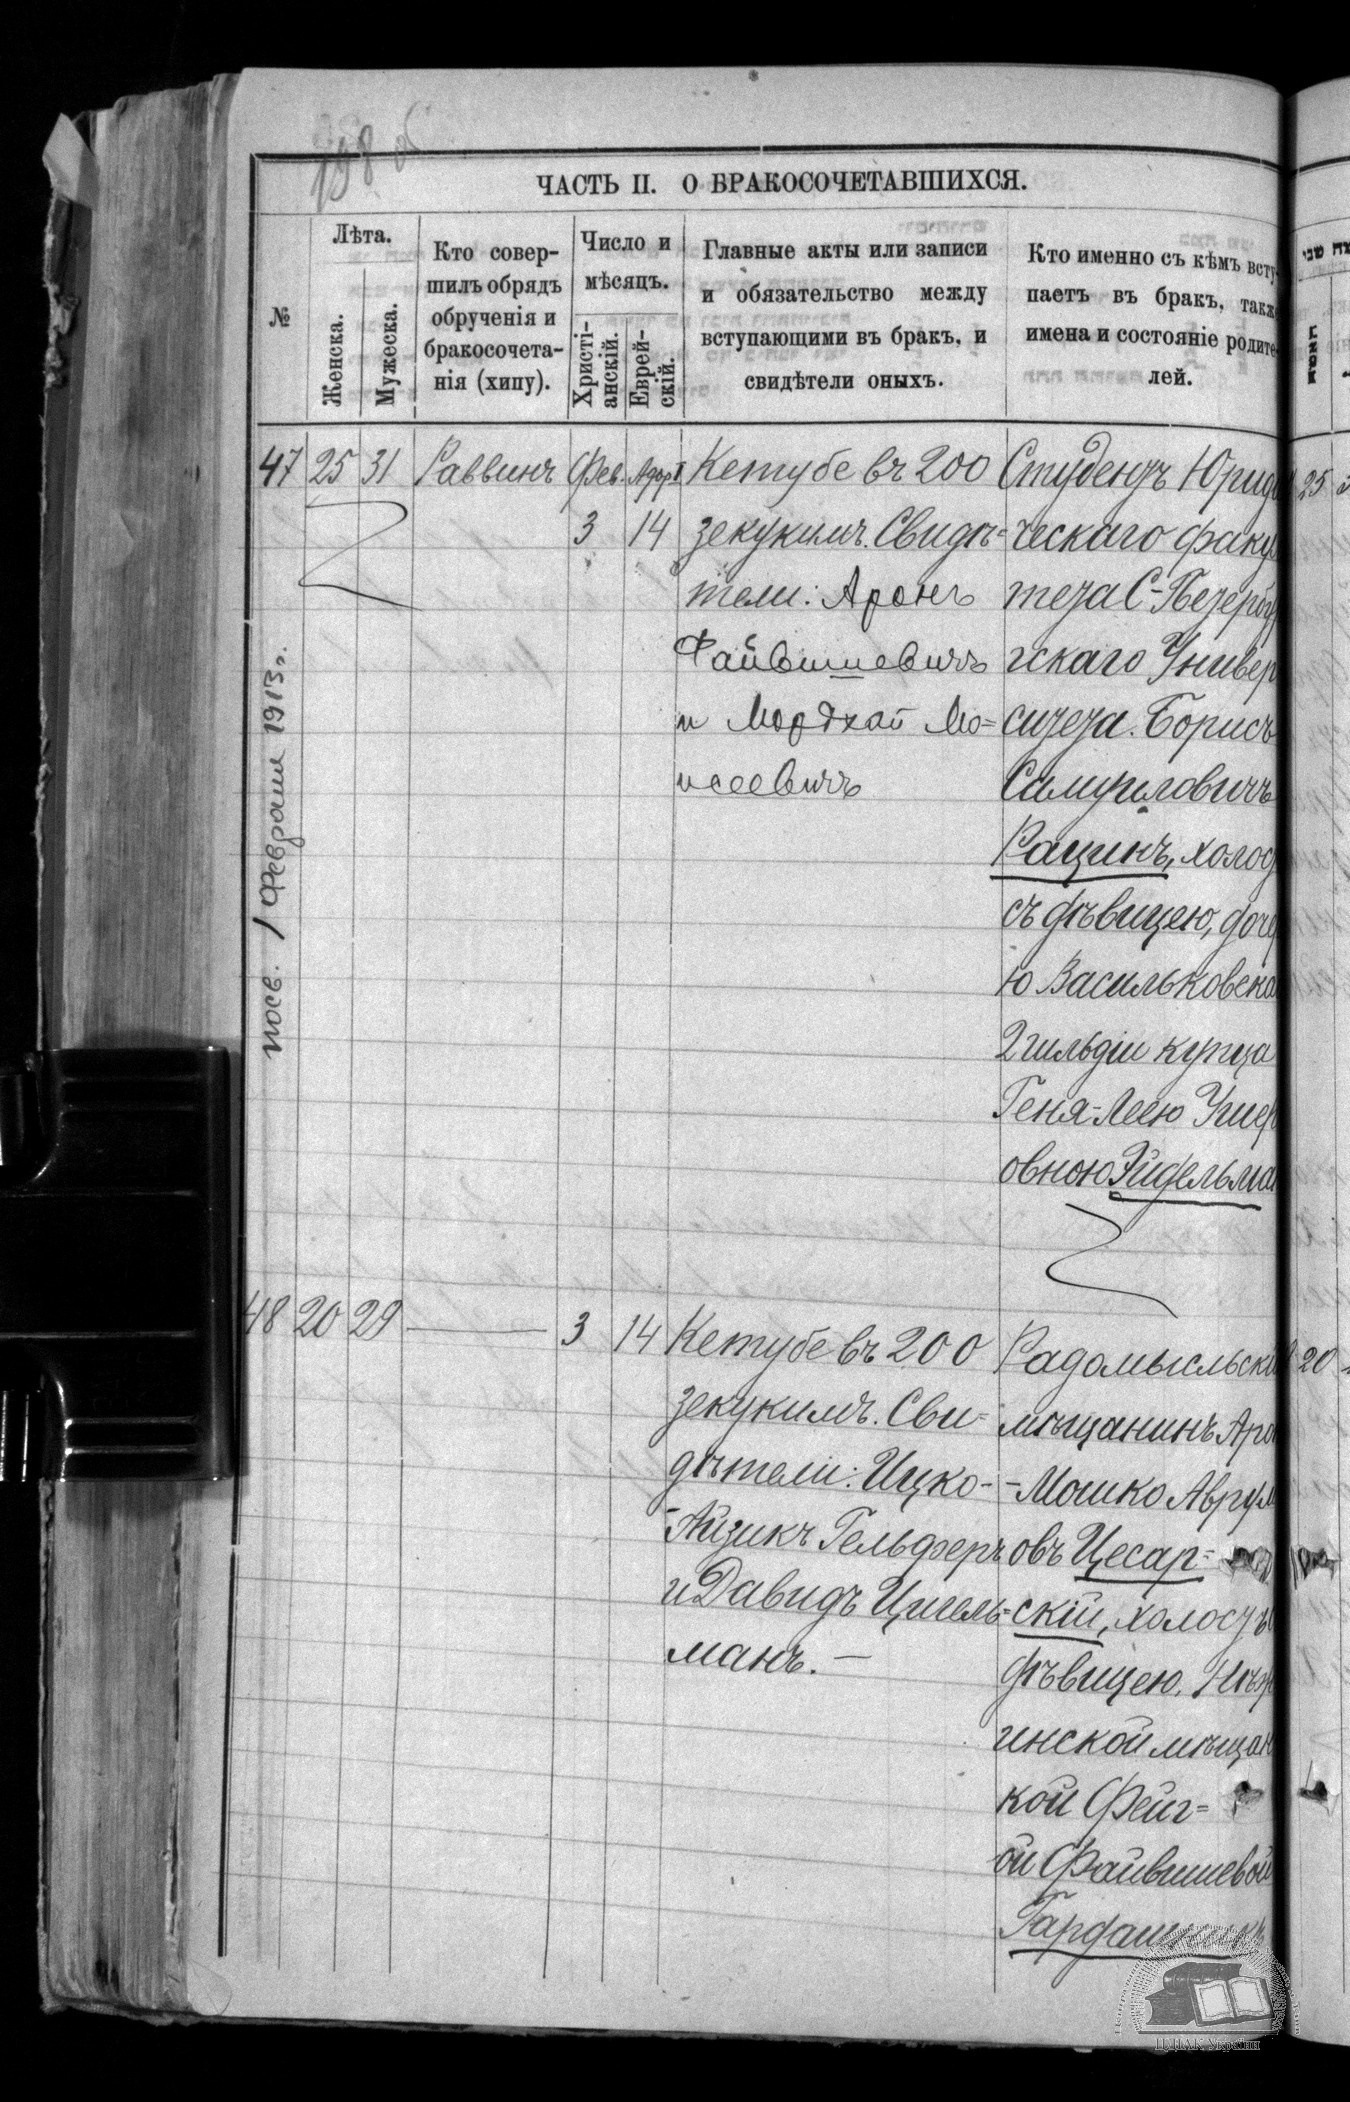 198 об
ЧАСТЬ II. О БРАКОСОЧЕТАВШИХСЯ.
№
Лѣта.
Женска.
Мужеска.
Кто совер-
шилъ обрядъ
обрученія и
бракосочета-
нія (хипу).
Число и
мѣсяцъ.
Христі-
анскій.
Еврей-
скій.
Главные акты или записи
и обязательство между
вступающими въ бракъ, и
свидѣтели оныхъ.
Кто именно съ кѣмъ всту-
паетъ въ бракъ, также
имена и состояніе родите-
лей.
47 25 31 Раввинъ Фев. Адаръ
3 14
Кетубе въ 200
зекукимъ. Свидѣ=
тели: Аронъ
Файвишевичъ
и Мордхай Мо=
исеевичъ
Студентъ Юриди
ческаго факул
тета С-Петербур
гскаго Универ
ситета. Борисъ
Самуиловичъ
Рацинъ, холост
съ дѣвицею, дочер
ю Васильковска
2 гильдіи купца
Геня-Леею Ушер
овною Эйдельма
февраля 1913 г.
48 20 29 — 3 14
Кетубе въ 200
зекукимъ. Сви=
дѣтели: Ицко-
-Айзикъ Гельферъ
и Давидъ Цигель=
манъ. —
Радомысльскій
мѣщанинъ Аро
-Мошко Аврум
овъ Цесар=
скій, холостъ
дѣвицею, Нѣж
инской мѣщан
кой Фейг=
ой Файвишевой
25
20
ЦДІАК України